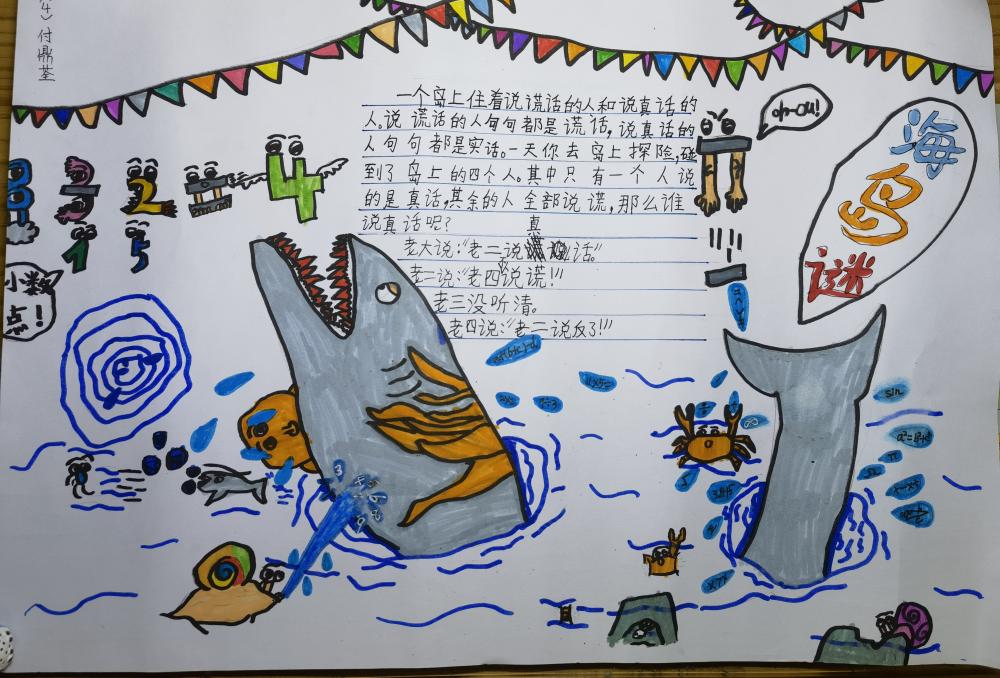 4）付鼎荃
一个岛上住着说谎话的人和说真话的
人.说谎话的人句句都是谎话，说真话的
人句句都是实话。一天你去岛上探险,碰
到了岛上的四个人。其中只有一个人说
的是真话,其余的人全部说谎,那么谁
说真话呢？
老大说:“老二说真话。”
老二说:“老四说谎!!!
老三没听清。
老四说:“老二说反了!!!”
oh-ou!
海
岛
谜
4
2
1
5
小数
点!
sin
π